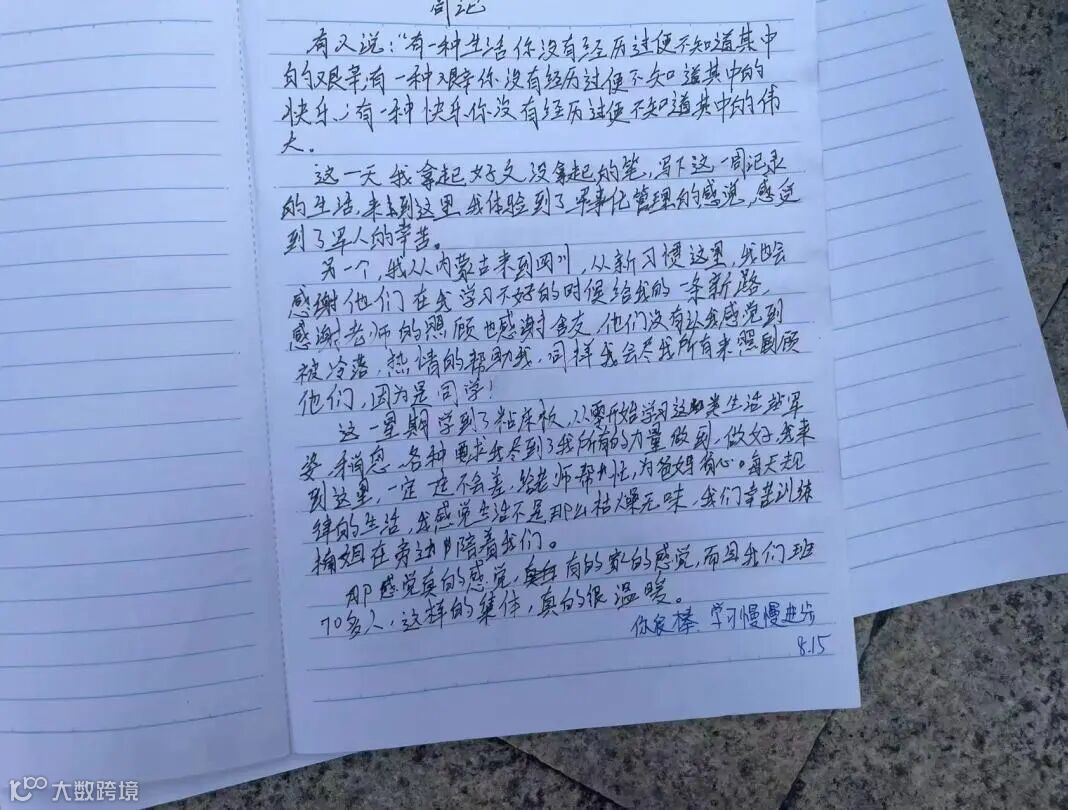 周记
有又说:"有一种生活你没有经历过便不知道其中
的艰辛,有一种艰辛你没有经历过便不知道其中的
快乐,有一种快乐你没有经历过便不知道其中的伟
大。
这一天我拿起好久没拿起的笔,写下这一周记录
的生活,来到这里我体验到了军事化管理的感觉,感受
到了军人的辛苦。
另一个,我从内蒙古来到四川,从新习惯这里,我也会
感谢他们在我学习不好的时候给我的一条新路,
感谢老师的照顾也感谢舍友,他们没有让我感觉到
被冷落,热情的帮助我,同样我会尽我所有来照顾
他们,因为是同学!
这一星期学到了粘床板,从零开始学习这类生活站军
姿,稍息,各种要求我尽到了我所有的力量做到,做好,我来
到这里,一定 不会差,给老师帮忙,为爸妈省心。每天规
律的生活,我感觉生活不是那么枯燥无味,我们辛苦训练
楠姐在旁边陪着我们。
那感觉真的感觉,有的家的感觉,而且我们班
70多人,这样的集体,真的很温暖。
你很棒,学习慢慢进步
8.15
大数跨境